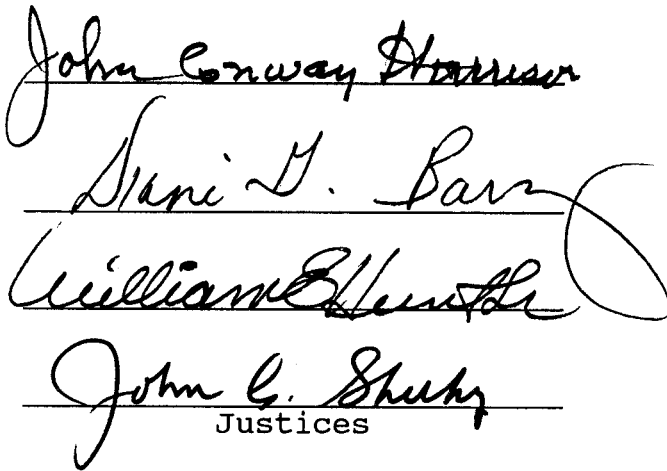 John Conway Harrison
Diane G. Barz
William E Hunt Sr
John C. Sheehy
Justices